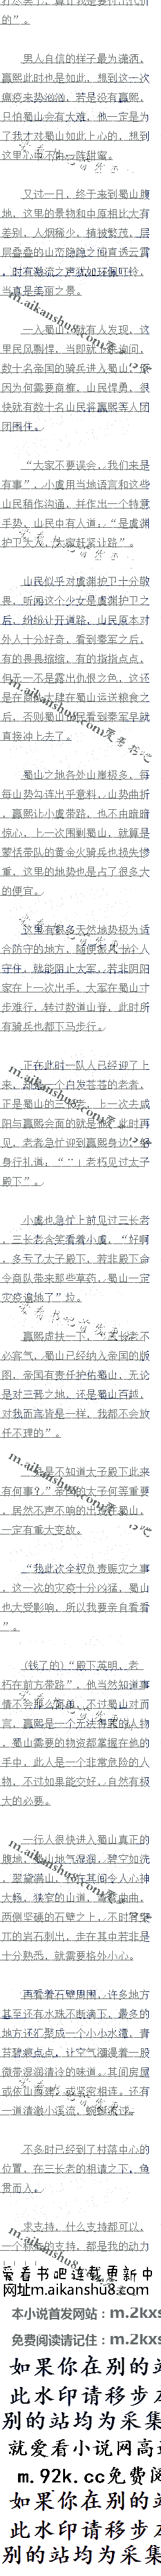 的”。
男人自信的样子最为潇洒，
嬴熙此时也是如此，想到这一次
瘟疫来势汹汹，若是没有嬴熙，
只怕蜀山会有大难，他一定是为
了我才对蜀山如此上心的，想到
这里心中不由一阵甜蜜。
又过一日，终于来到蜀山腹
地，这里的景物和中原相比大有
差别，人烟稀少，植被繁茂，层
层叠叠的山峦隐隐之间直透云霄
，时有激流之声犹如环佩叮铃，
当真是美丽之景。
一入蜀山，就有人发现，这
里民风剽悍，
数十名帝国的骑兵进入蜀山，原
因为何需要商榷，山民悍勇，很
快就有数十名山民将嬴熙等人团
团围住。
“大家不要误会，我们来是
有事”，小虞用当地语言和这些
山民稍作沟通，并作出一个特意
手势，山民中有人道：“是虞渊
护卫大人，大家赶紧让路”。
山民似乎对虞渊护卫十分敬
畏，听闻这个少女是虞渊护卫之
后，纷纷让开道路，山民原本对
外人十分好奇，看到秦军之后，
有的畏畏缩缩，有的指指点点，
但无一不是露出仇恨之色，这还
是在商队大肆在蜀山运送粮食之
后，否则蜀山山民看到秦军早就
直接冲上去了。
蜀山之地各处山崖极多，每
每山势勾连出乎意料，山势曲折
，嬴熙让小虞带路，也不由暗暗
惊心，上一次围剿蜀山，就算是
蒙恬带队的黄金火骑兵也损失惨
重，这里的地势也是占了很多大
的便宜。
这里有好多天然地势极为适
合防守的地方，随便派几十个人
守住，就能阻止大军，若非阴阳
家在上一次出手，大军在蜀山寸
步难行，转过数道山脊，此时所
有骑兵也都下马步行。
正在此时一队人已经迎了上
来，
正是蜀山的三长老，上一次去咸
阳与嬴熙会面的就是他，此时再
见，老者急忙迎到嬴熙身边，躬
身行礼道：“ ˙˙ 」老朽见过太子
殿下”。
小虞也急忙上前见过三长老
，三长老含笑看着小虞，“好啊
，多亏了太子殿下，若非殿下命
令商队带来那些草药，蜀山一定
灾疫遍地了”啦。
嬴熙虚扶一下，“三长老不
必客气，蜀山已经纳入帝国的版
图，帝国有责任护佑蜀山，无论
是对三郡之地，还是蜀山百越，
对我而言皆是一样，我都不会放
任不理的”。
“只是不知道太子殿下此来
有何事？”帝国的太子何等重要
，居然不声不响的出现在蜀山，
一定有重大变故。
“我此次全权负责赈灾之事
，这一次的灾疫十分凶猛，蜀山
也大受影响，所以我要亲自看看
”。
（钱了的）“殿下英明，老
朽在前方带路”，他当然知道事
情不会那么简单，不过蜀山对而
言，嬴熙是一个无法得罪的人物
，蜀山需要的物资都掌握在他的
手中，此人是一个非常危险的人
物，不过如果能交好，自然有极
大的必要。
一行人很快进入蜀山真正的
腹地，蜀山地气湿润，碧空如洗
，翠黛满山，行于其间令人心神
大畅，狭窄的山道，弯弯曲曲，
两侧坚硬的石壁之上，不时有突
兀的岩石刺出，走在其中若非是
十分熟悉，就需要格外小心。
再看着石壁周围，许多地方
甚至还有水珠不断滴下，最多的
地方还汇聚成一个小小水潭，青
苔碧痕点点，让空气弥漫着一股
微带湿润清泠的味道。其间房屋
或依山而建，或紧密相连。还有
一道清澈小溪流，蜿蜒流淌。
不多时已经到了村落中心的
位置，在三长老的相请之下，鱼
贯而入。
求支持，什么支持都可以，
一个小小的支持，都是我的动力
！！！！
爱看书吧连载更新中
网址m.aikanshu8.com
本小说首发网站：m.2kxs
免费阅读请记住：m.2kxs
如果你在别的站
此水印请移步本
别的站均为采集
就爱看小说网高速
m.92k.cc免费阅
如果你在别的站
此水印请移步本
别的站均为采集